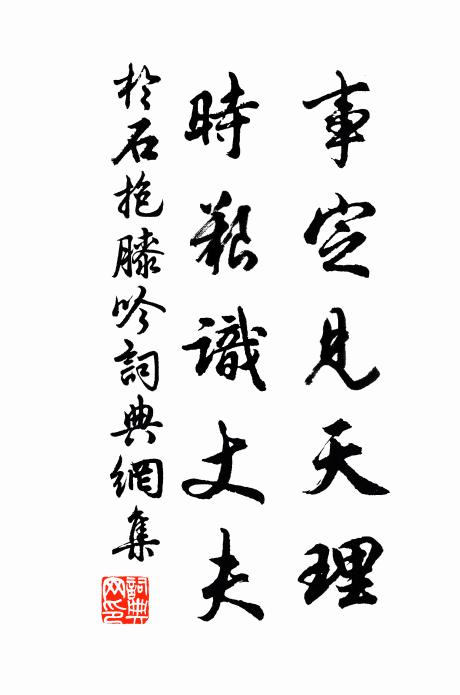 事定見天理
時艱識丈夫
於石抱膝吟詞典網集
詞典網印